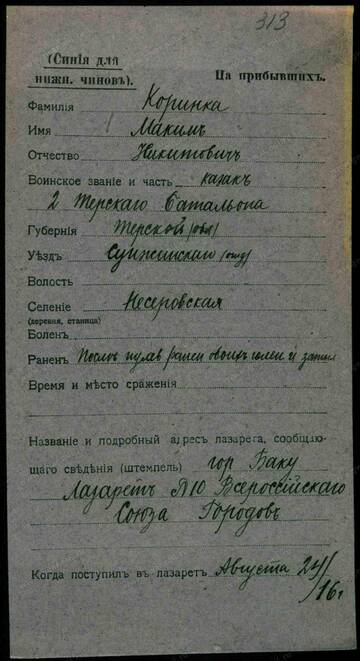 313
(Синія для
нижн. чиновъ).
На прибывшихъ.
Фамилія Коринка
Имя Макимъ
Отчество Никитовичъ
Воинское званіе и часть казакъ
2 Терскаго Баталъона
Губернія Терской (обл)
Уѣздъ Сунженскаго (отд)
Волость
Селеніе Несеровская
(деревня, станица)
Боленъ
Раненъ После пулев ранен
Время и мѣсто сраженія
Названіе и подробный адресъ лазарета, сообщаю-
щаго свѣдѣнія (штемпель) гор Баку
Лазаретъ №10 Всероссійскаго
Союза Городовъ
Когда поступилъ въ лазаретъ Августа 24/
/16 г.